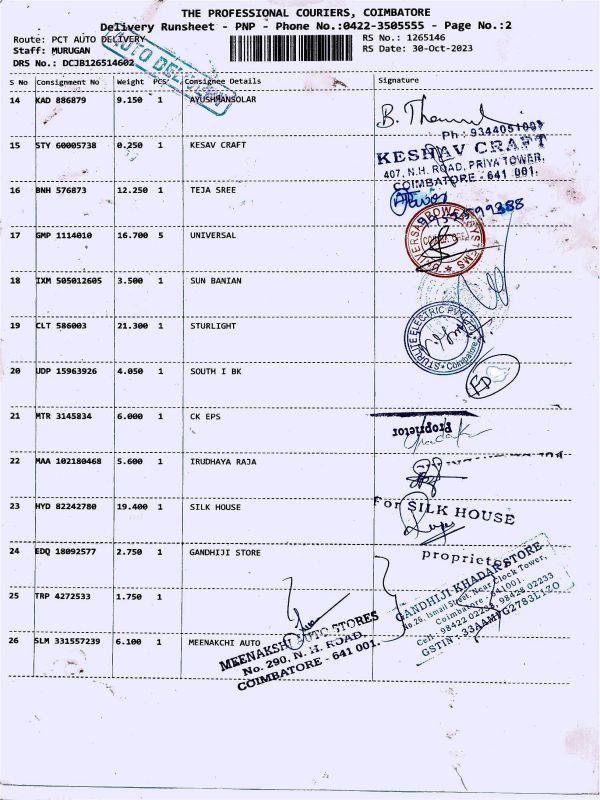 THE PROFESSIONAL COURIERS, COIMBATORE
Delivery Runsheet - PNP - Phone No.:0422-3505555 - Page No.:2
Route: PCT AUTO DELIVERY
RS No.: 1265146
Staff: MURUGAN
RS Date: 30-Oct-2023
DRS No.: DCJB126514602
AUTO DELIVERY
S No Consignment No Weight PCS Consignee Details Signature
14 KAD 886879 9.150 1 AYUSHMANSOLAR
15 STY 60005738 0.250 1 KESAV CRAFT
Ph: 9344051007
KESHAV CRAFT
407, N.H. ROAD, PRIYA TOWER,
COIMBATORE - 641 001.
16 BNH 576873 12.250 1 TEJA SREE
17 GMP 1114010 16.700 5 UNIVERSAL
18 IXM 505012605 3.500 1 SUN BANIAN
19 CLT 586003 21.300 1 STURLIGHT
STURLITE ELECTRIC PVT
Coimbatore
20 UDP 15963926 4.050 1 SOUTH I BK
21 MTR 3145834 6.000 1 CK EPS
Proprietor
22 MAA 102180468 5.600 1 IRUDHAYA RAJA
23 HYD 82242780 19.400 1 SILK HOUSE
For SILK HOUSE
proprietor
24 EDQ 18092577 2.750 1 GANDHIJI STORE
GANDHIJI KHADAR STORE
No.26, Ismail Street, Near Clock Tower,
Coimbatore - 641001.
Cell: 98422 02233, 98428 02233
25 TRP 4272533 1.750 1
26 SLM 331557239 6.100 1 MEENAKCHI AUTO
MEENAKSHI AUTO STORES
No. 290, N. H. ROAD,
COIMBATORE - 641 001.